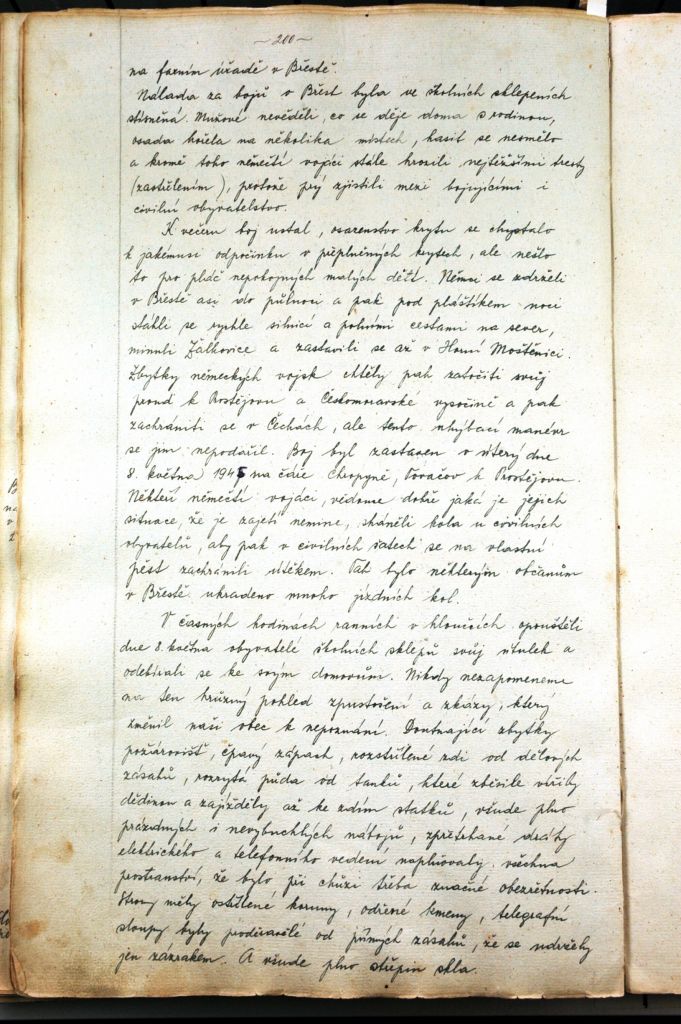 ~ 200 ~
na farním úřadě v Břestě.
Nálada za bojů o Břest byla ve školních sklepeních
stísněná. Mužové nevěděli, co se děje doma s rodinou,
osada hořela na několika místech, hasit se nesmělo
a kromě toho němečtí vojáci stále hrozili nejtěžšími tresty
(zastřelením), protože prý zjistili mezi bojujícími i
civilní obyvatelstvo.
K večeru boj ustal, osazenstvo krytu se chystalo
k jakémusi odpočinku v přeplněných krytech, ale nešlo
to pro pláč nepokojných malých dětí. Němci se zdrželi
v Břestě asi do půlnoci a pak pod pláštíkem noci
stáhli se rychle silnicí a polními cestami na sever,
minuli Žalkovice a zastavili se až v Horní Moštěnici.
Zbytky německých vojsk chtěly pak zatočiti svůj
proud k Prostějovu a Českomoravské vysočině a pak
zachrániti se v Čechách, ale tento úhybací manévr
se jim nepodařil. Boj byl zastaven v úterý dne
8. května 1945 na čáře Chropyně, Tovačov k Prostějovu.
Někteří němečtí vojáci, vědomi dobře jaká je jejich
situace, že je zajetí nemine, sháněli kola u civilních
obyvatelů, aby pak v civilních šatech se na vlastní
pěst zachránili útěkem. Tak bylo některým občanům
v Břestě ukradeno mnoho jízdních kol.
V časných hodinách ranních v hloučcích opouštěli
dne 8. května obyvatelé školních sklepů svůj útulek a
odebírali se ke svým domovům. Nikdy nezapomeneme
na ten hrůzný pohled zpustošení a zkázy, který
změnil naši obec k nepoznání. Doutnající zbytky
požárovišť, čpavý zápach, rozstřílené zdi od dělových
zásahů, rozrytá půda od tanků, které zběsile vířily
dědinou a zajížděly až ke zdím statků, všude plno
prázdných i nevybuchlých nábojů, zpřetrhané dráty
elektrického a telefonního vedení naplňovaly všechna
prostranství, že bylo při chůzi třeba značné obezřetnosti.
Stromy měly ostřílené koruny, odřené kmeny, telegrafní
sloupy byly proděravělé od přímých zásahů, že se udržely
jen zázrakem. A všude plno střepin skla.